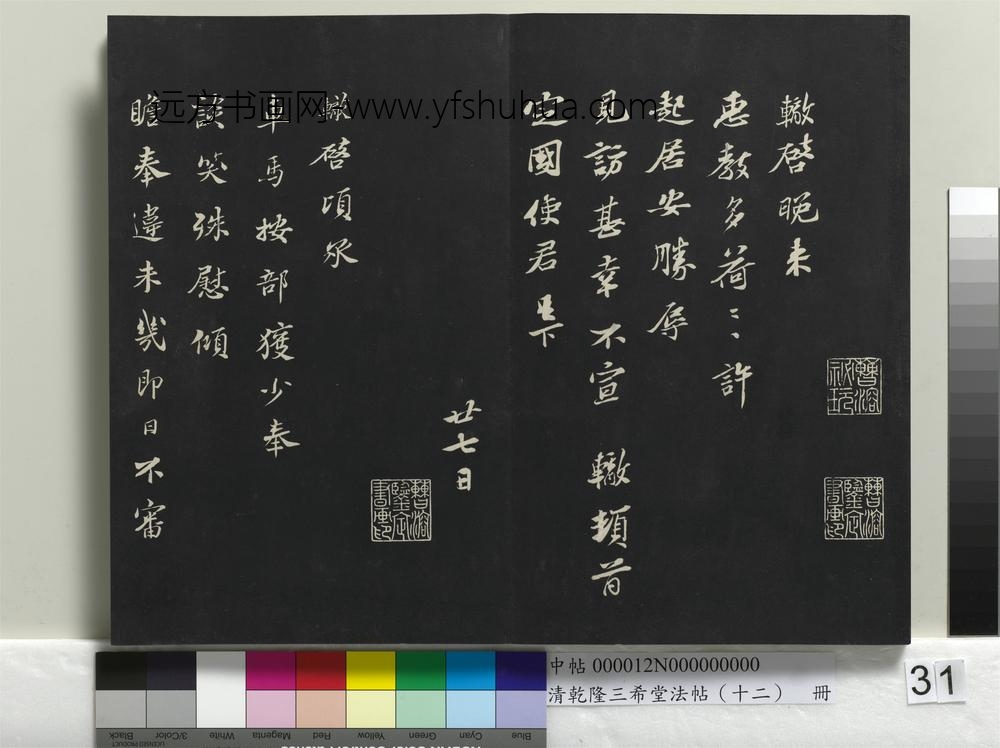 轍啓晚来
惠教多荷〻許
起居安勝辱
見訪甚幸不宣 轍頓首
定國使君足下
廿七日
轍啓頃承
車馬按部獲少奉
談笑殊慰傾
瞻奉違未幾即日不審
曹溶秘玩
曹溶鑒定書畫印
曹溶鑒定書畫印
远方书画网 www.yfshuhua.com
中帖 000012N000000000
清乾隆三希堂法帖（十二） 冊
31
Blue Cyan Green Yellow Red Magenta White 3/Color Black